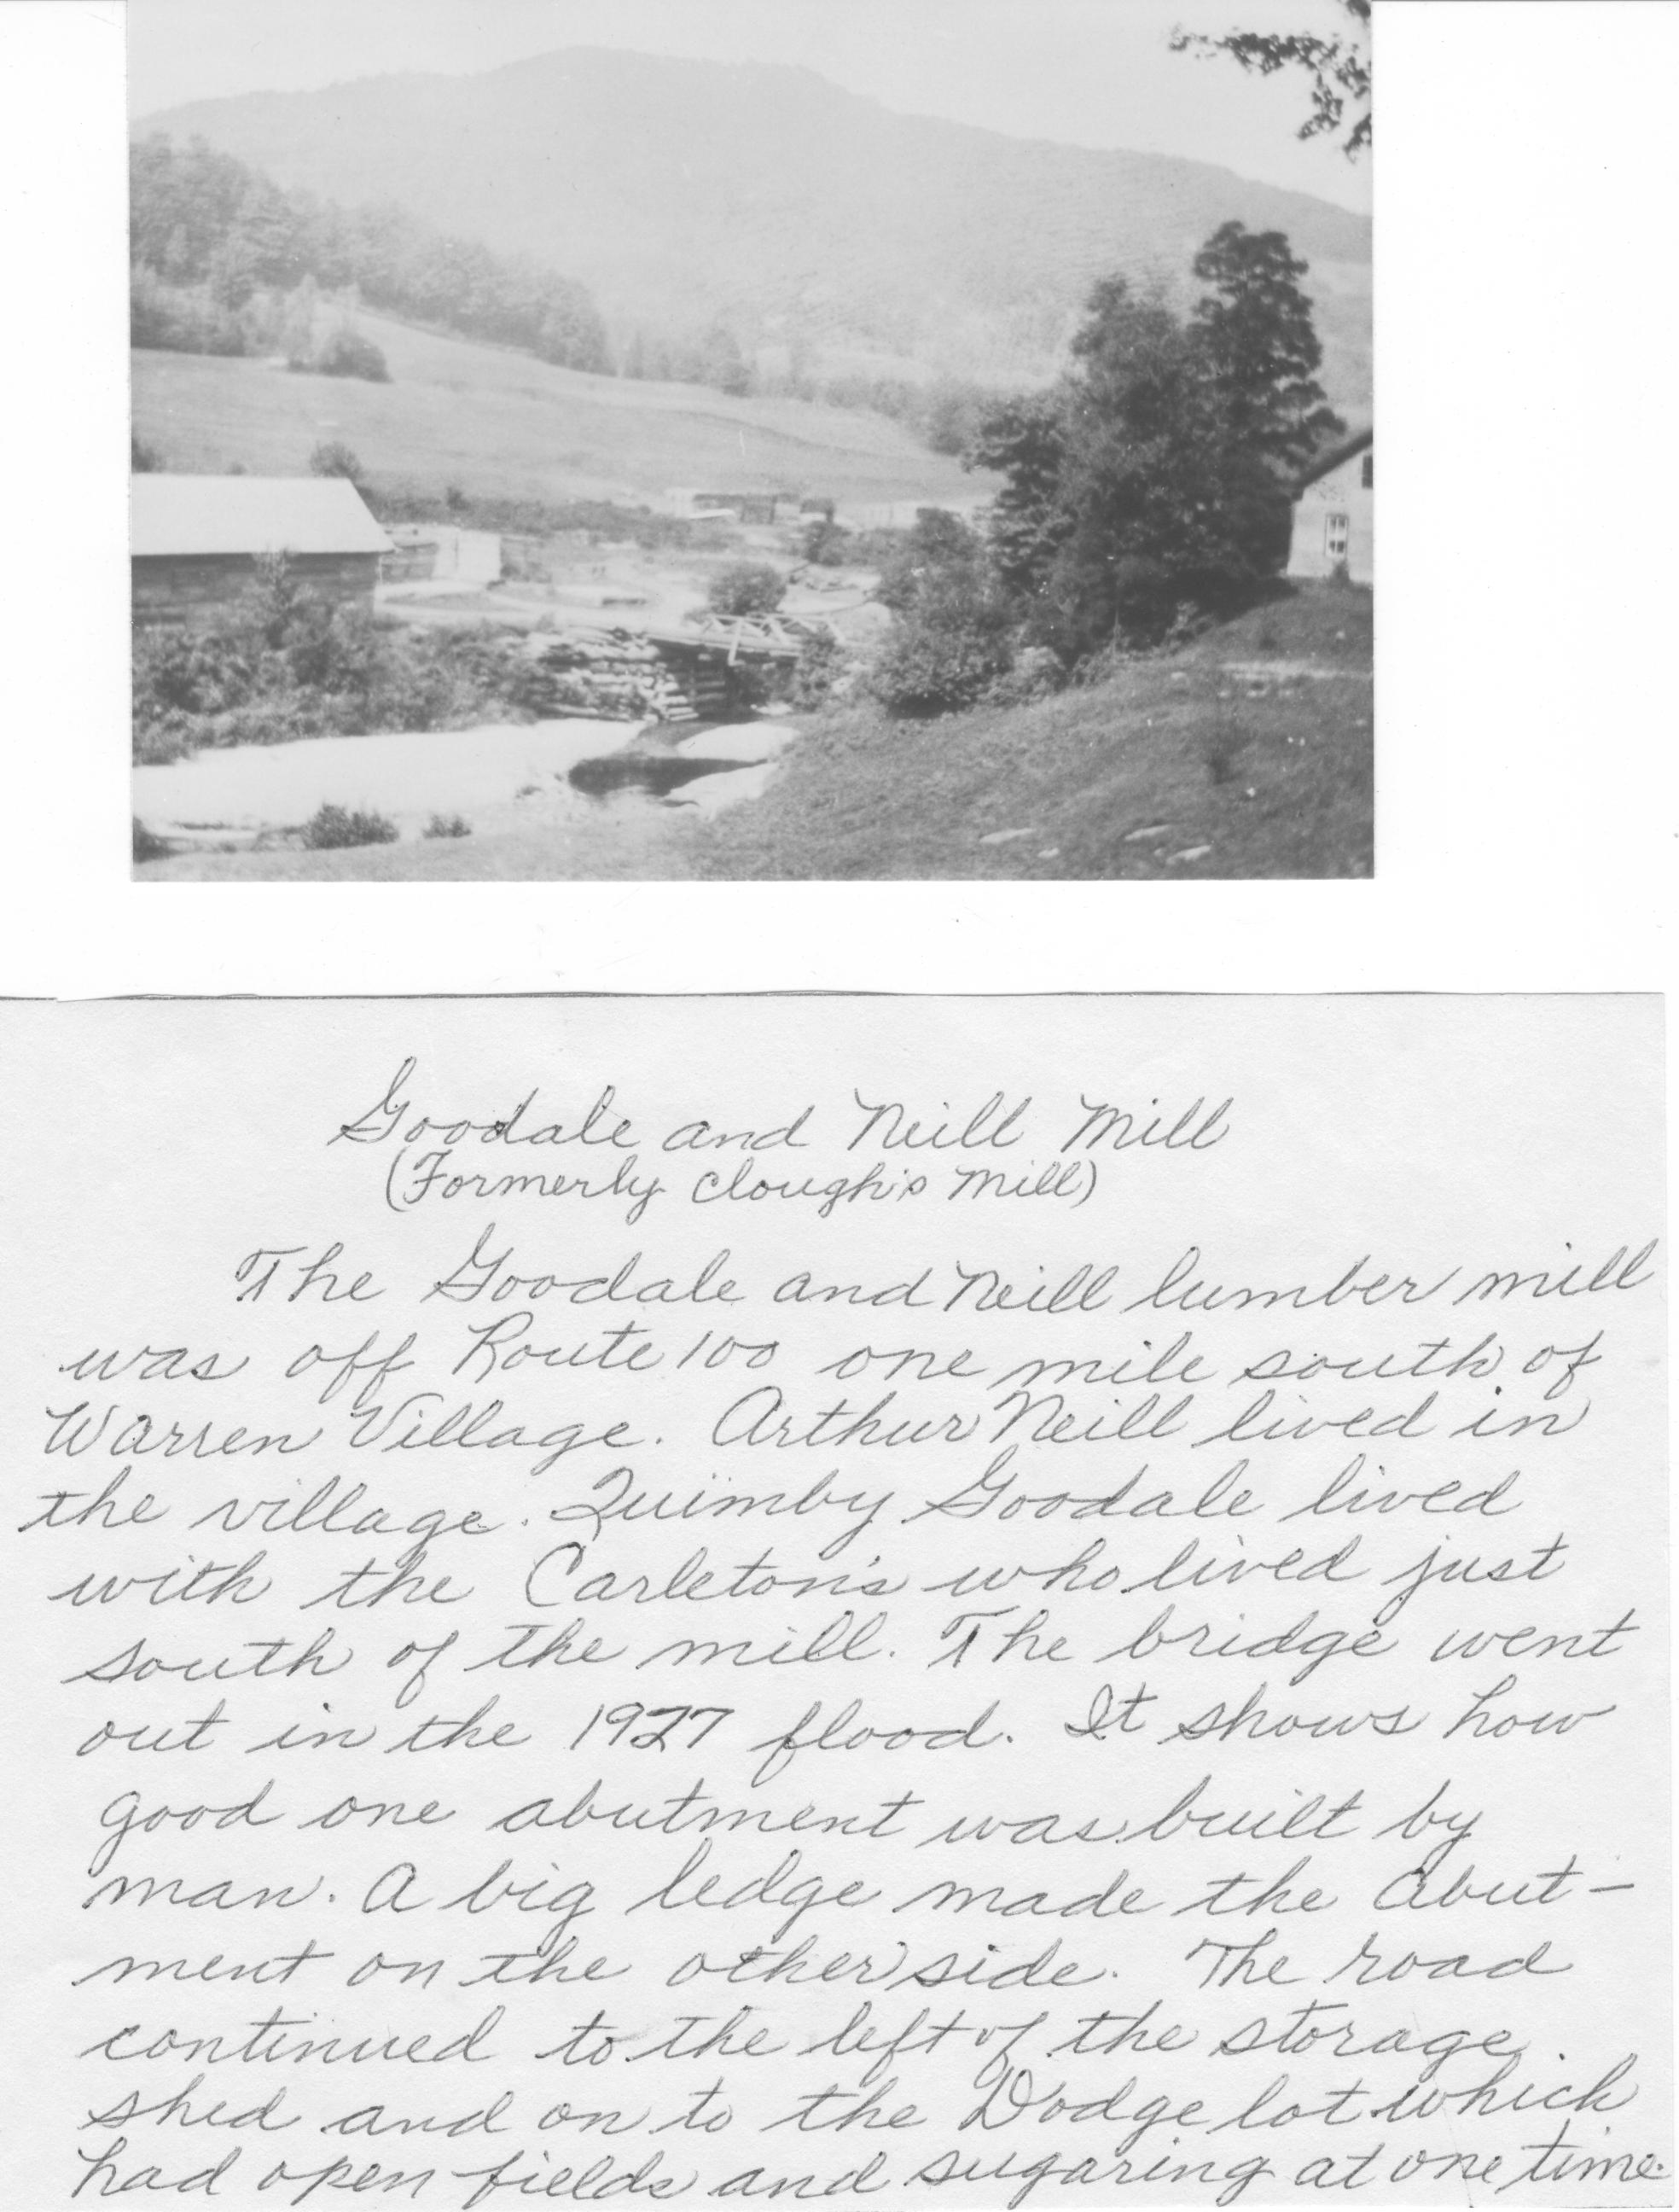 Goodale and Neill Mill
(Formerly Clough's Mill)
The Goodale and Neill lumber mill
was off Route 100 one mile south of
Warren Village. Arthur Neill lived in
the village. Quimby Goodale lived
with the Carleton's who lived just
south of the mill. The bridge went
out in the 1927 flood. It shows how
good one abutment was built by
man. A big ledge made the abut-
ment on the other side. The road
continued to the left of the storage
shed and on to the Dodge lot which
had open fields and sugaring at one time.